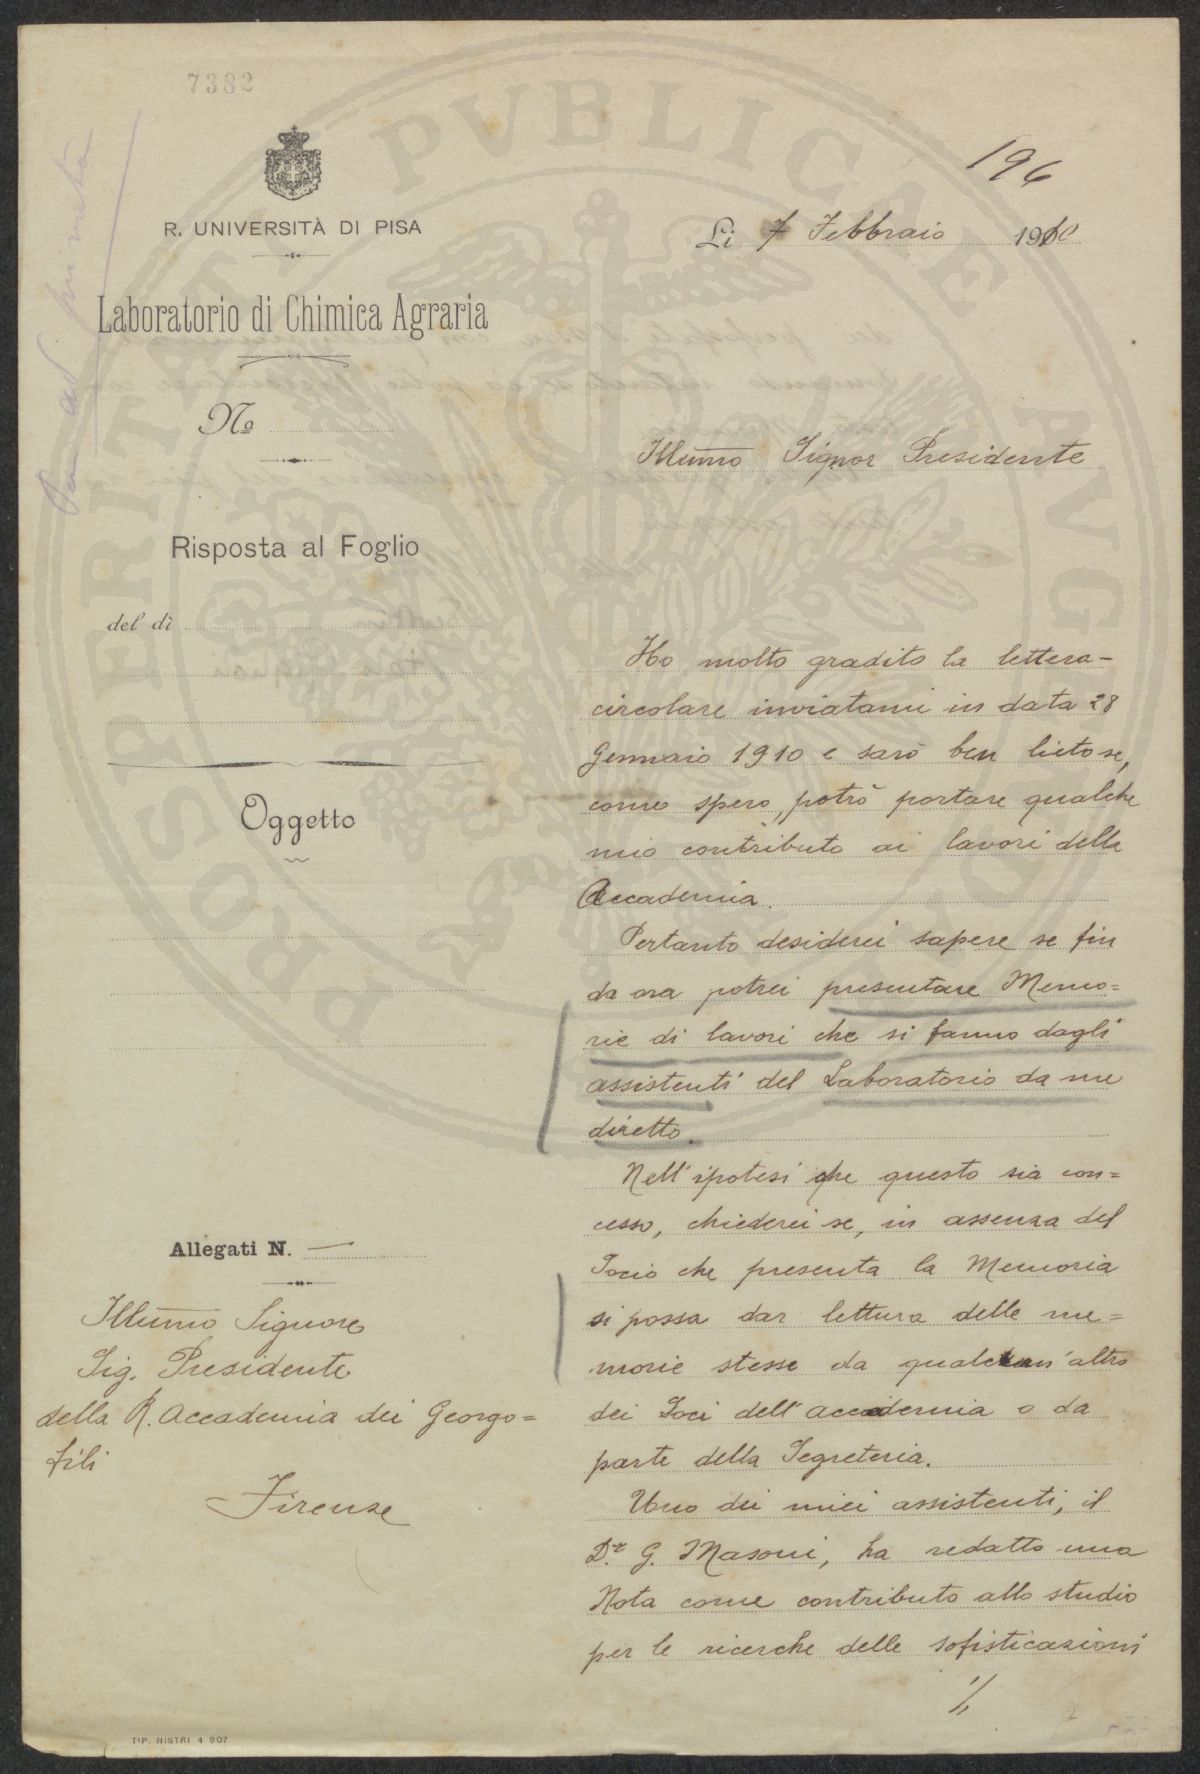 7382
196
R. UNIVERSITÀ DI PISA
Laboratorio di Chimica Agraria
Nº
Risposta al Foglio
del dì
Oggetto
Allegati N. —
Illumo Signore
Sig. Presidente
della R. Accademia dei Georgo=
fili
Firenze
TIP. NISTRI 4 907
Li 7 Febbraio 1910
Illumo Signor Presidente
Ho molto gradito la lettera-
circolare inviatami in data 28
Gennaio 1910 e sarò ben lieto se,
come spero, potrò portare qualche
mio contributo ai lavori della
Accademia.
Pertanto desiderei sapere se fin
da ora potrei presentare Memo=
rie di lavori che si fanno dagli
assistenti del Laboratorio da me
diretto.
Nell'ipotesi che questo sia con=
cesso, chiederei se, in assenza del
Socio che presenta la Memoria
si possa dar lettura delle me=
morie stesse da qualcun'altro
dei Soci dell'accademia o da
parte della Segreteria.
Uno dei miei assistenti, il
D.r G. Masoni, ha redatto una
Nota come contributo allo studio
per le ricerche delle sofisticazioni
./.
PROSPERITATI PVBLICAE AVGENDAE